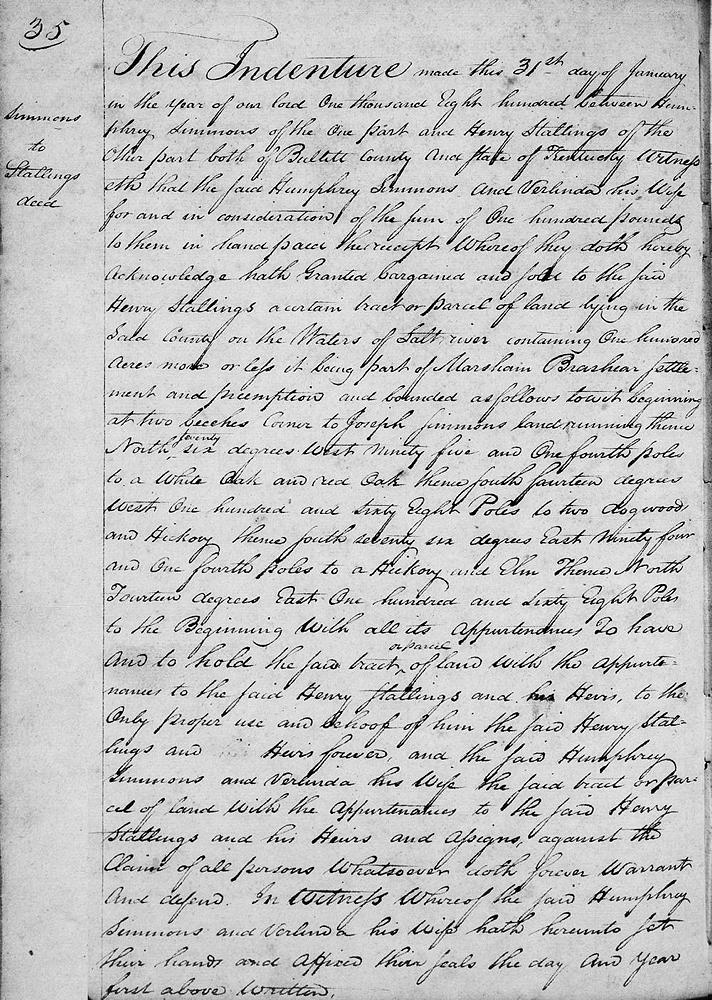 35
Simmons
to
Stallings
deed
This Indenture made this 31st day of January
in the year of our lord One thousand Eight hundred between Hum-
phrey Simmons of the One part and Henry Stallings of the
Other part both of Bullitt County and State of Kentucky Witness
eth that the said Humphrey Simmons And Verlinda his Wife
for and in consideration of the sum of One hundred pounds
to them in hand paid the receipt Whereof they doth hereby
Acknowledge hath Granted bargained and sold to the said
Henry Stallings a certain tract or parcel of land lying in the
Said County on the Waters of Salt river containing One hundred
Acres more or less it being part of Marsham Brashear settle-
ment and preemption and bounded as follows towit beginning
at two beeches Corner to Joseph Simmons land running thence
North seventy six degrees West Ninety five and One fourth poles
to a White Oak and red Oak thence south fourteen degrees
West One hundred and sixty Eight Poles to two dogwoods
and Hickory thence south seventy six degrees East Ninety four
and One fourth poles to a Hickory and Elm Thence North
Fourteen degrees East One hundred and sixty Eight Poles
to the Beginning With all its Appurtenances To have
And to hold the said tract or parcel of land With the Appurte-
nances to the said Henry Stallings and his Heirs, to the
Only proper use and behoof of him the said Henry Stal-
lings and Heirs forever, and the said Humphrey
Simmons and Verlinda his Wife the said tract or par-
cel of land With the Appurtenances to the said Henry
Stallings and his Heirs and Assigns, against the
Claim of all persons Whatsoever doth forever Warrant
And defend. In Witness Whereof the said Humphrey
Simmons and Verlinda his Wife hath hereunto set
their hands and Affixed their seals the day And Year
first above Written.